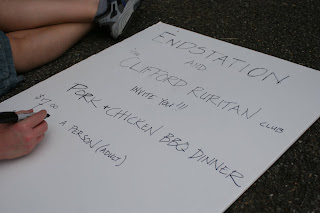 ENDSTATION
AND
THE CLIFFORD RURITAN CLUB
INVITE YOU!!!
PORK + CHICKEN BBQ DINNER
$7.00 A PERSON (ADULT)